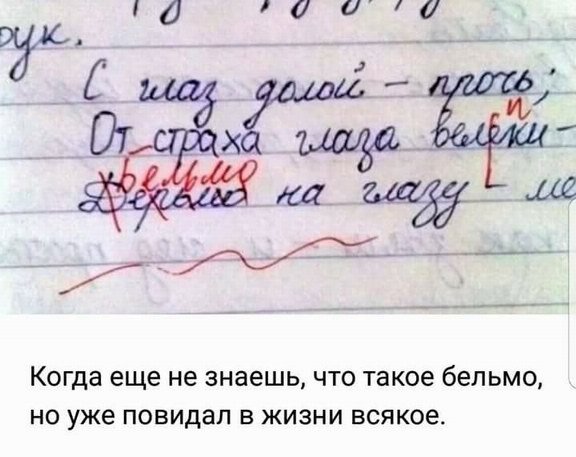 рук.
С глаз долой - прочь;
п
От страха глаза велеки -
бельмо
Дерьмо на глазу - ме
Когда еще не знаешь, что такое бельмо,
но уже повидал в жизни всякое.